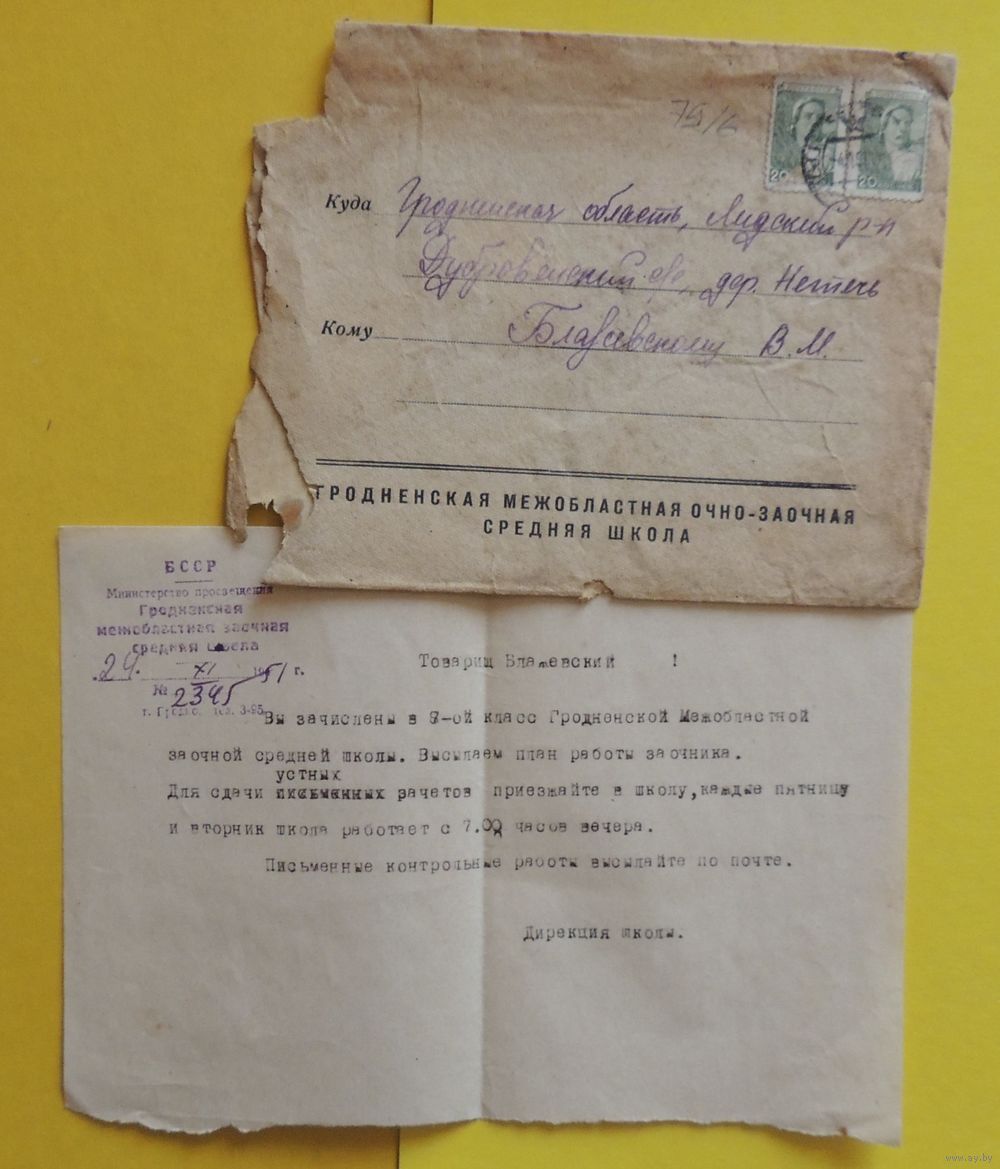 75/6
20 20
Куда Гродненская область, Лидский р-н
Дубровенский с/с, дер. Нетечь
Кому Блажевскому В.М.
ГРОДНЕНСКАЯ МЕЖОБЛАСТНАЯ ОЧНО-ЗАОЧНАЯ
СРЕДНЯЯ ШКОЛА
БССР
Министерство просвещения
Гродненская
межобластная заочная
средняя школа
24. XI 1951 г.
№ 2395
г. Гродно, тел. 3-95
Товарищ Блажевский !
Вы зачислены в 8-ой класс Гродненской Межобластной
заочной средней школы. Высылаем план работы заочника.
устных
Для сдачи письменных зачетов приезжайте в школу, каждые пятницу
и вторник школа работает с 7.00 часов вечера.
Письменные контрольные работы высылайте по почте.
Дирекция школы.
www.ay.by